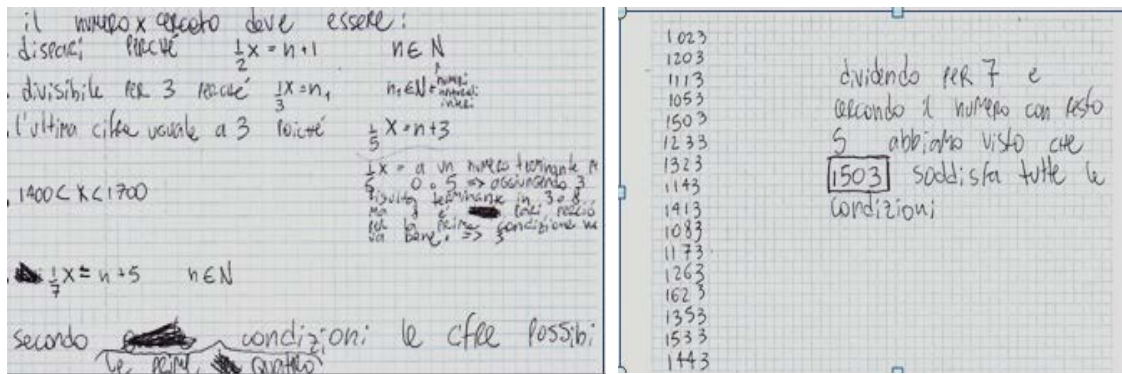 il numero x cercato deve essere:
dispari perché 1/2 x = n+1 n ∈ N
divisibile per 3 perché 1/3 x = n₁ n₁ ∈ N numeri naturali interi
l'ultima cifra uguale a 3 poiché 1/5 x = n+3
1/5 x = a un numero terminante
0 o 5 => aggiungendo 3
risulta terminante in 3 o 8
ma 8 è pari perciò
per la prima condizione
va bene => 3
1400 < x < 1700
1/7 x = n+5 n ∈ N
secondo condizioni le cifre possibi
le prime quattro
1023
1203
1113
1053
1503
1233
1323
1143
1413
1083
1173
1263
1623
1353
1533
1443
dividendo per 7 e
cercando il numero con resto
5 abbiamo visto che
1503 soddisfa tutte le
condizioni